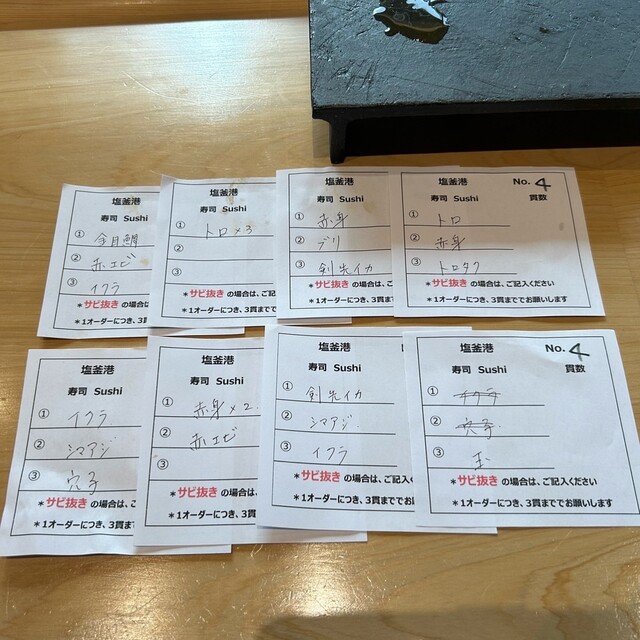 塩釜港
寿司 Sushi
① 金目鯛
② 赤エビ
③ イクラ
＊サビ抜き の場合は、
＊1オーダーにつき、3貫
塩釜港
寿司 Sushi
① トロ×3
②
③
＊サビ抜き の場合は、ご記
＊1オーダーにつき、3貫まで
塩釜港
寿司 Sushi
① 赤身
② ブリ
③ 剣先イカ
＊サビ抜き の場合は、ご記
＊1オーダーにつき、3貫まで
塩釜港 No. 4
寿司 Sushi 貫数
① トロ
② 赤身
③ トロタク
＊サビ抜き の場合は、ご記入ください
＊1オーダーにつき、3貫まででお願いします
塩釜港
寿司 Sushi
① イクラ
② シマアジ
③ 穴子
＊サビ抜き の場合は、
＊1オーダーにつき、3貫
塩釜港
寿司 Sushi
① 赤身×2
② 赤エビ
③
＊サビ抜き の場合は、
＊1オーダーにつき、3貫
塩釜港
寿司 Sushi
① 剣先イカ
② シマアジ
③ イクラ
＊サビ抜き の場合は、ご記
＊1オーダーにつき、3貫まで
塩釜港 No. 4
寿司 Sushi 貫数
① イクラ
② 穴子
③ 玉
＊サビ抜き の場合は、ご記入ください
＊1オーダーにつき、3貫まででお願いします